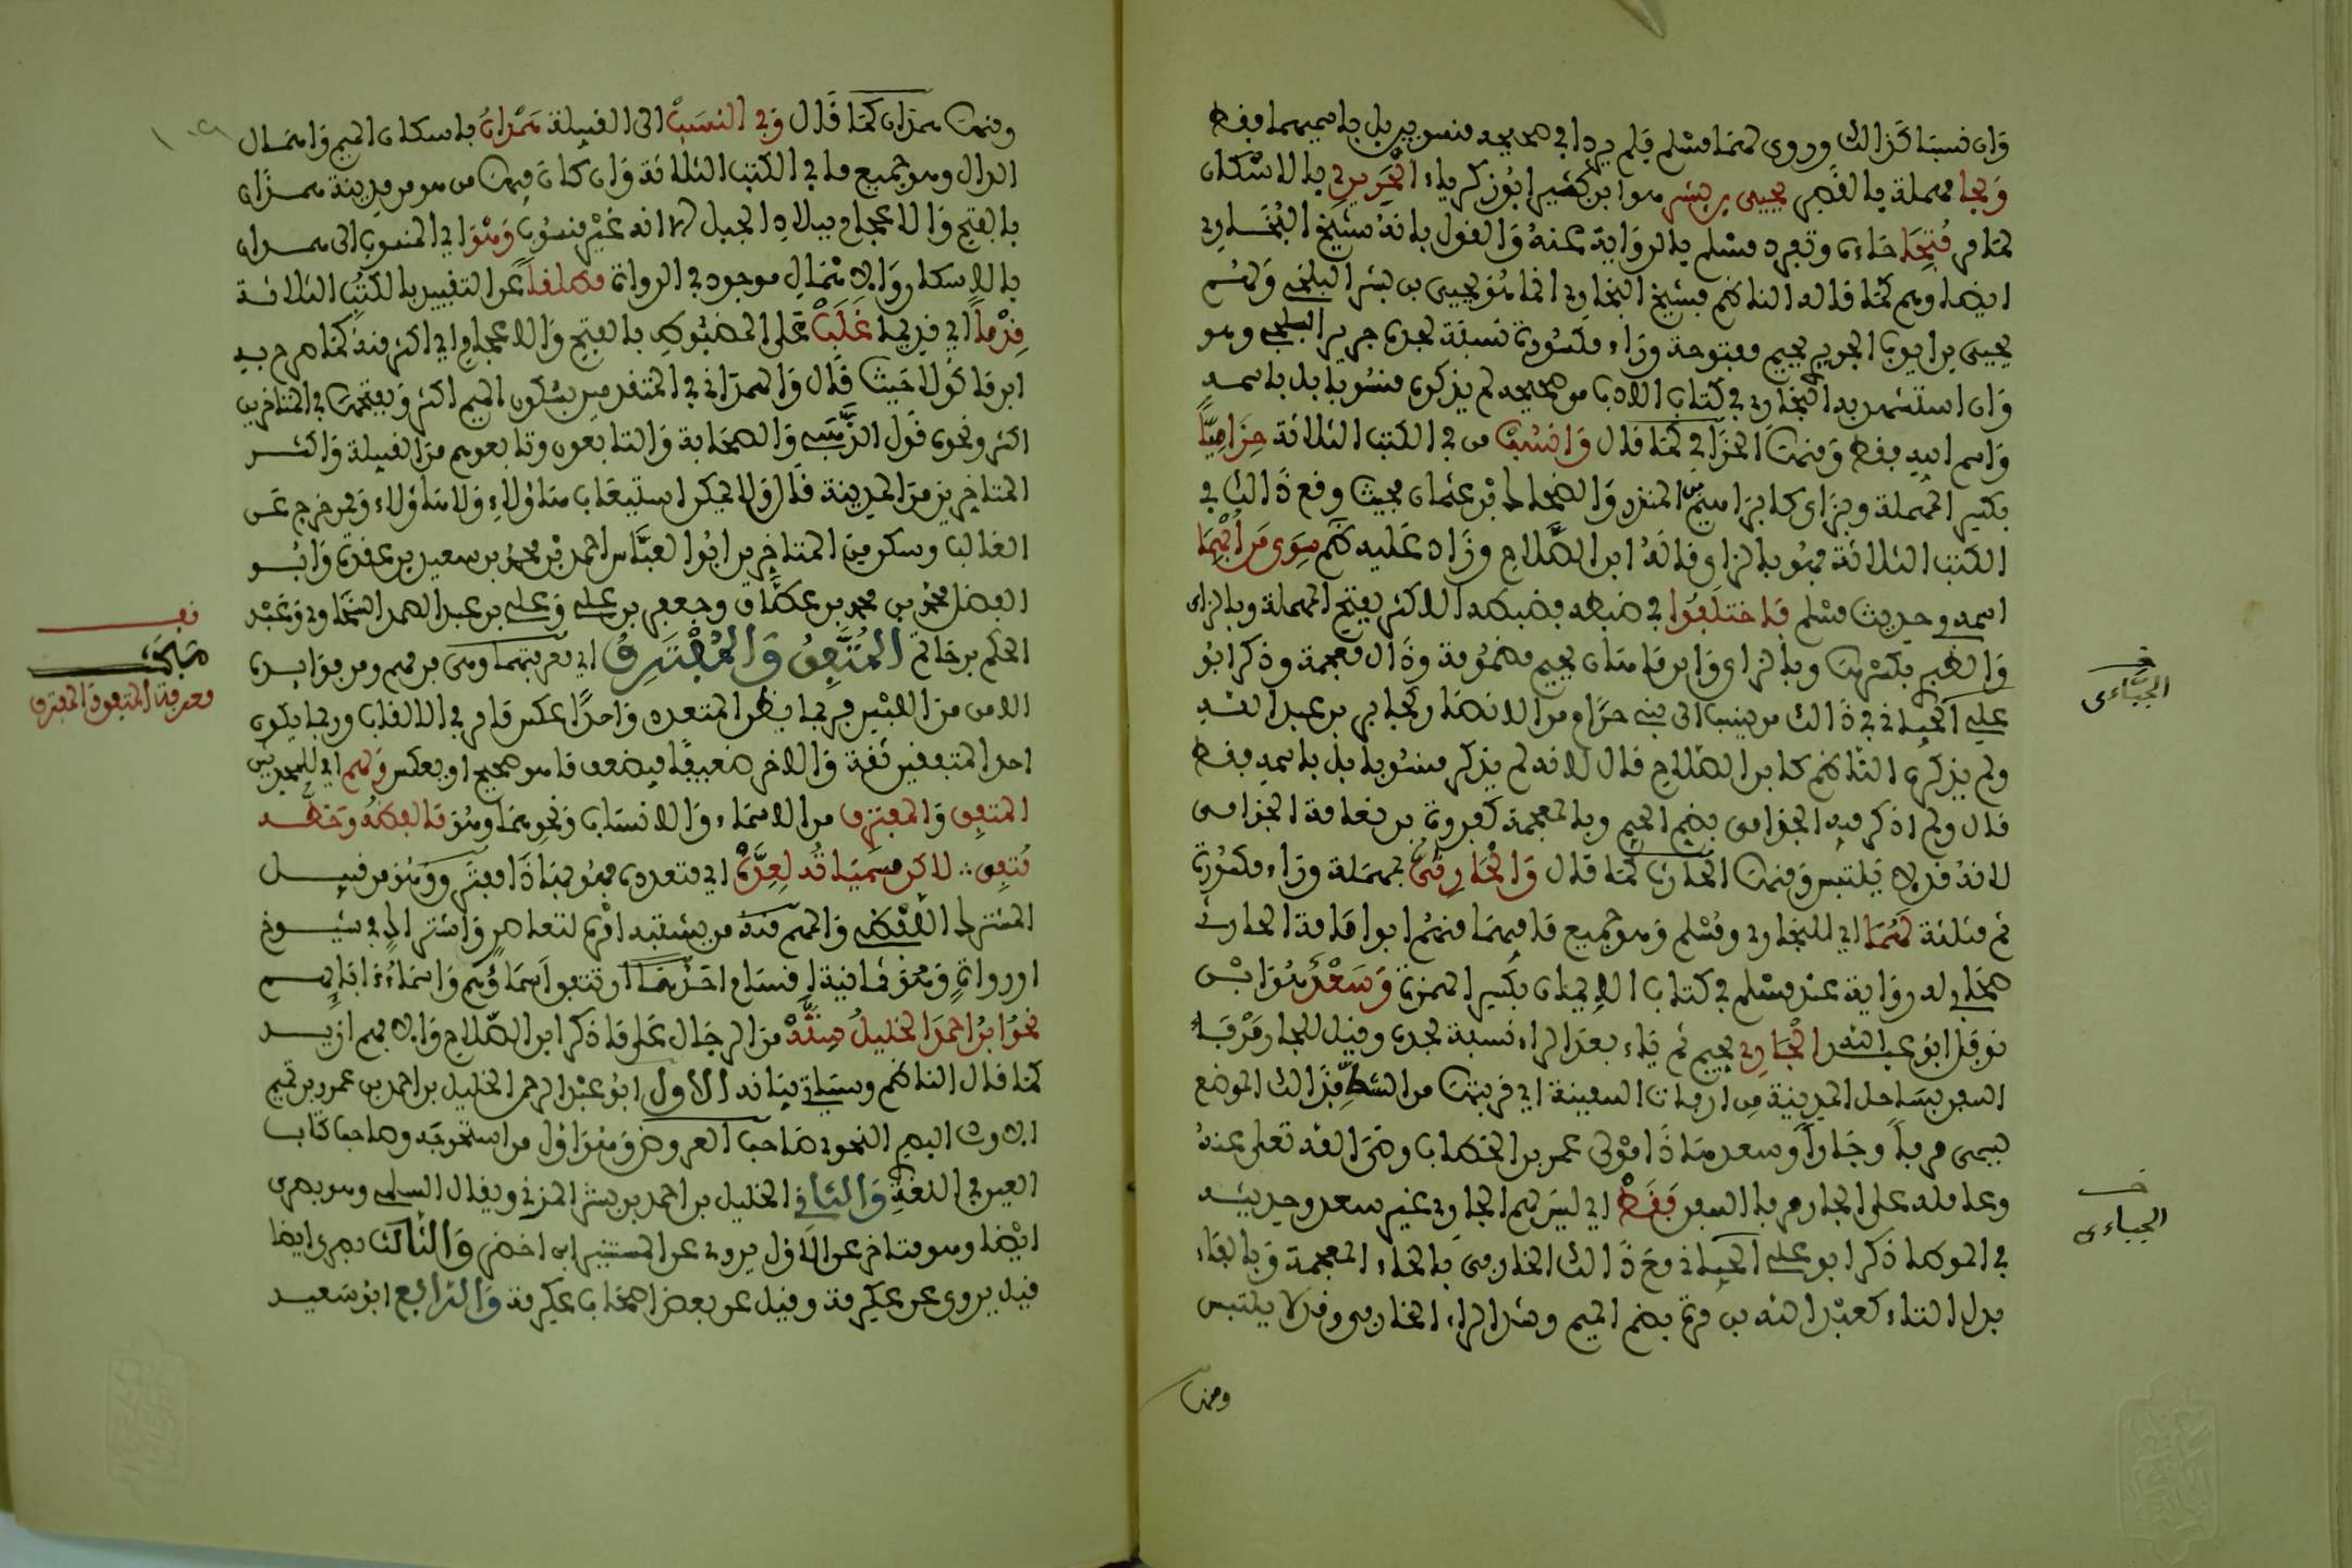 وَان نسبَا كَذَالك وروى لهمَا مسْلم فلم يرد ا في صحيحه منسوبين بل باسميهما فقط
وَبحا مهملة بالقصر يحيى بن بشر هوا بن كثير ابُوزكرياء الْحَرِيرِي بالاسْكان
لمَا مر فُتِحَا حَاءه وتفرد مسْلم بالروَاية عنهُ وَالقول بانهُ شيْخ البُخَاري
ايضا وهم كمَا قاله الناظم فشيخ البخَاري انما هُو يحيى بن بشر البلخي وَلهُم
يحيى بن ايوب الجريري بجيم مفتوحة ورَاء مكسُورة نسبَة لجده جرير البجلي وهو
وَان استشهد به البخَاري في كتاب الادب من صحيحه لم يذكره منسُوبا بل باسمه
وَاسم ابيه فقط وَمنهَا الحزَامي كمَا قال وَانسُبْ من في الكتب الثلاثة حِزَامِيًّا
بكسر المهملة وبزاى كابرَاهيم بن المنذر وَالضحاك بْن عثمان بحيث وقع ذَا الثاني في
الكتب الثلاثة فهُو بالزاى قالهُ ابن الصَّلاح وزَاد عَليه ظم سِوَى مَن اُبْهِمَا
اسمه وحديث مسْلم فاختلَفُوا في ضبطه فضبطه الاكثر بفتح المهملة وبالراى
وَالطبرى بكسْرهَا وبالزاى وَابن مَاهان بجيم مضمُومة وذَال معجمة وذكر ابُو
علي الجياني في ذَالك من ينسب الى بني حرَام من الانصَار كجابر بن عبد الله
ولم يذكره الناظم كابن الصّلاح قال لانه لم يذكر منسُوبا بل باسمه فقط
قال ولم اذكر فيه الجذامى بضم الجيم وبالمعجمة كفروة بن نعامة الجذامى
لانهُ قد لا يَلتبس وَمنهَا الحارثي كمَا قال وَالْحَارِثيُّ بمهمَلة ورَاء مكسُورة
ثم مثلثة لهُمَا اي للبخاري ومُسْلم وَهو جميع مَا فيهمَا فمنهُم ابوا مَامة الحارث
صحَابي له روَاية عند مسْلم في كتاب الايمَان بكسر الهمزة وَسَعْدٌ هُوَ ابْن
نوفل ابوُ عبد الله الْجَارِي بجيم ثم يَاء بعدَ الراء نسبَة لجده وقيل للجار مَرْفأ
السفن بسَاحل المدينة مِن ارفات السفينة اي قربتهَا من الشطِّ فذَالك الموضع
يسمى مرفأ وَجارا وسعد هَاذَا مَوْلى عمر بن الخطاب رضى الله تعلى عنهُ
وعامله على الجار مرفا السفن فَقَطْ اي ليْسَ لهم الجاري غيْر سعد وحديثه
في الموطا ذكر ابو علي الجياني معَ ذَالك الخارفي بالخاء المعجمة وَبالفَاء
بدل الثاء كعبْد الله بن مرة بضم الميم وشد الراء الخارفي وقد لا يلتبس
ومنها
خ
الجيَّاءى
خ
الجياءى
ومنهَا همدَان كمَا قَال وَفي النسَبْ الى القبيلة هَمْدانُ باسكان الميم وَاهمَال
الدال وهو جميع ما في الكتب الثلاثة وَان كان فيهَا من هو من مدينة همذان
بالفتح وَالاعجام ببلاد الجبل لانه غيْر منسُوب وَهْوَ اي المنسوب الى همدان
بالاسكان وَالاهْمَال موجود في الرواة مطلقاً عن التقييد بالكتب الثلاثة
قِدْماً اي قديما غَلَبْ عَلى المضبُوط بالفتح وَالاعجام اي اكثر منهُ كمَا صرح به
ابن ماكُولا حَيث قَال وَالهمدَاني في المتقدمين بسُكون الميم اكثر وَبفتحهَا في المتاخرين
اكثر ونحوه قَول الذَّهبي وَالصحَابة وَالتابعون وتابعوهم منَ القبيلة وَاكثر
المتاخرين منَ المدينة قَال وَلا يمكن استيعَاب هَاؤلاء وَلا هَاؤلاء وَممن خرج عَن
الغالب وسكن مِن المتاخرين ابُوا لعبَّاس احمد بْن محمدُ بن سعيد بن عقدة وَابُو
الفضل محمدُ بن محمد بن عطَّاف وجعفر بن علي وَعلي بن عبد الصمد السَّخاوي وَعبْد
الحكم بن حَاتم المُتَّفِقُ وَالمُفْتَرِقُ اي معرفتهمَا وهي من مهم ومن فوَائده
الامن منَ اللبْس فربمَا يظن المتعدد وَاحدًا عكس مَا مر في الالقاب وربمَا يكون
احد المتفقين ثقة وَالاخر ضعيفًا فيضعف مَا هو صحيح او بعكس وَلهم اي للمحدثين
المتفِق وَالمفترِق من الاسمَاء وَالانسَاب وَنحوهمَا وهُو مَا لفظُهُ وَخطُّه
مُتفِق ∴ لاكن مسَمَّيَاتُه لِعِدَّةْ اي متعددة فهُو مِن هَاذَا مفترَق وَهُو من قبيل
المشترك اللفْظي وَالمهم منه من يشتبه امْرهُ لتعاصر وَاشترَاك في شيوخ
او روَاةٍ وَهُوَ ثمَانية اقسَام احَدُهَا ان تتفق اَسمَاؤُهم وَاسْمَاءُ ءَابَائِهم
نحوُ ابنُ احمدَ الخليلُ سِتَّةْ منَ الرجَال عَلى مَا ذكر ابن الصّلاح وَالا فهم ازيد
كمَا قال الناظم وسيَاتي بيَانه الاول ابوُ عبْد الرحمن الخليل بن احمد بن عمرو بن تميم
الازدي البصري النحوي صَاحب العروض وَهُوَ اوّل من استخرجَه وصَاحب كتاب
العين في اللغة وَالثاني الخليل بن احمد بن بشر المزني ويقال السلمي وهو بصرى
ايْضا وهو متاخر عن الاوّل يروي عن المستنير بن اخضر وَالثالث بصرى ايضا
قيل يروى عن عكرمة وقيل عن بعض اصحَاب عكرمة وَالرابع ابوُ سَعيد
قف
معرفة المتفِق وَالمفترق